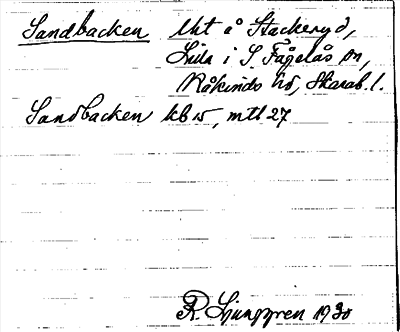 Sandbacken Uht å Stackeryd,
Lilla i S. Fågelås sn,
Kåkinds hd, Skarab. l.
Sandbacken kb 15, mtl 27
R. Ljunggren 1930